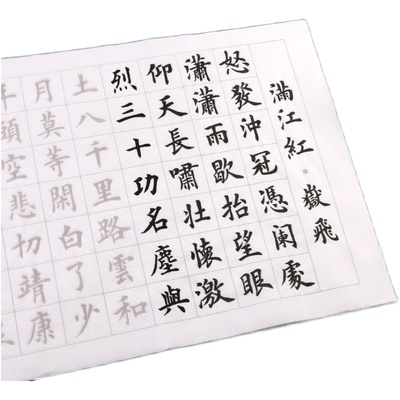 滿江紅。嶽飛
怒發沖冠憑闌處
瀟瀟雨歇抬望眼
仰天長嘯壯懷激
烈三十功名塵與
土八千里路雲和
月莫等閑白了少
年頭空悲切靖康